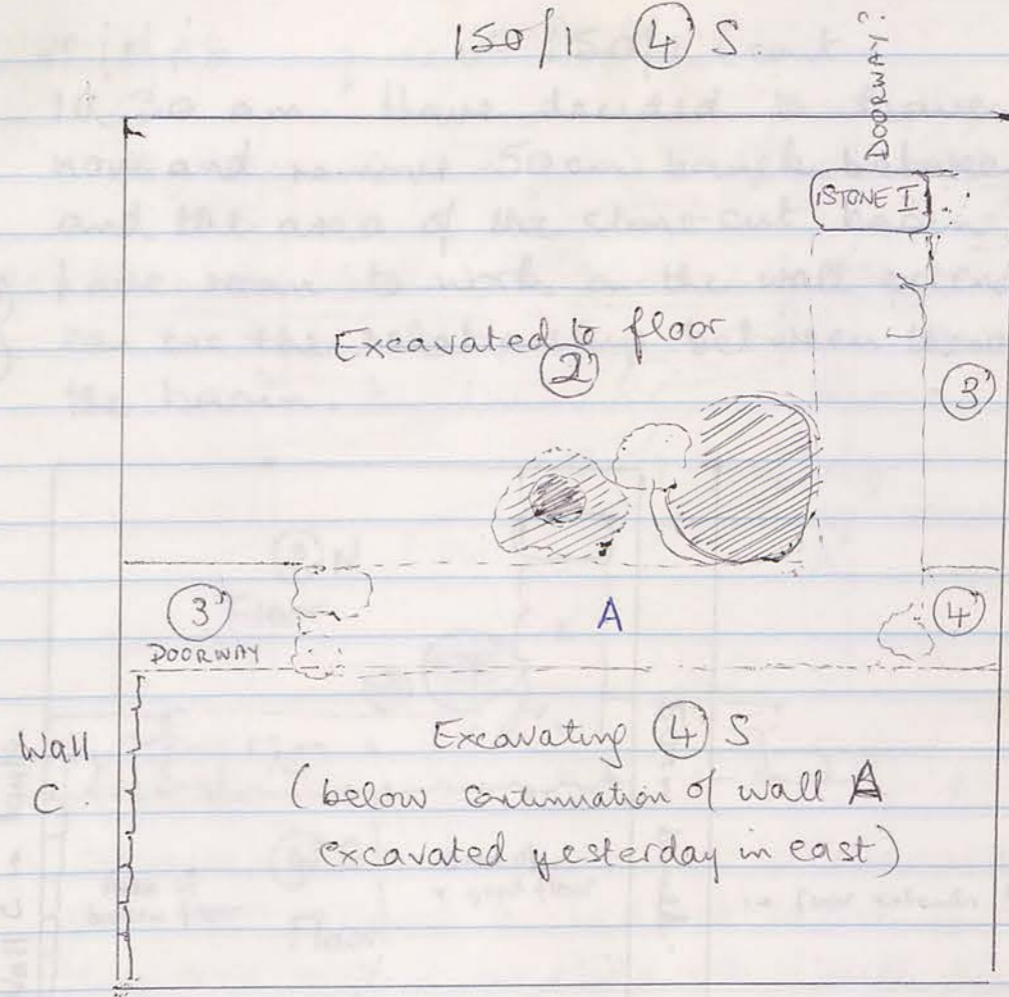 150/1 ④ S.
DOORWAY?
STONE I
Excavated to floor
②
③
③
DOORWAY
A
④
Wall
C.
Excavating ④ S
(below continuation of wall A
excavated yesterday in east)